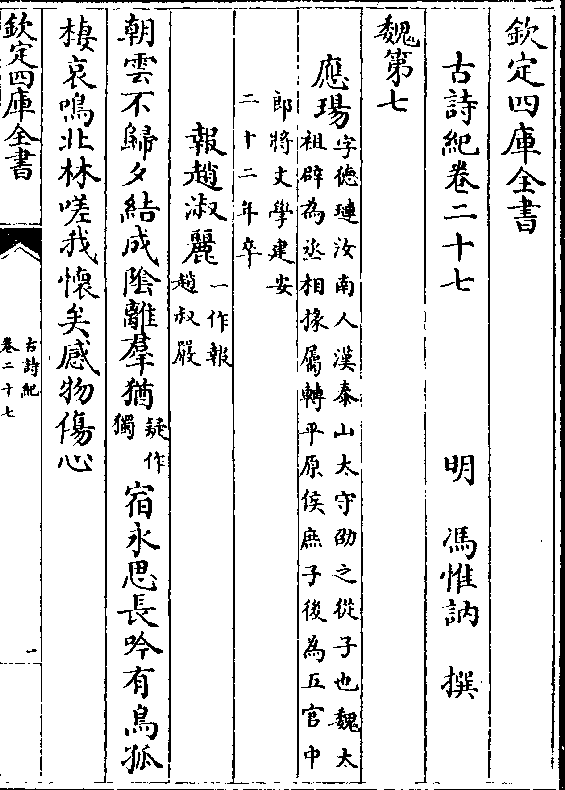 欽定四庫全書
古詩紀卷二十七
明 馮惟訥 撰
魏第七
應瑒
字德璉汝南人漢泰山太守劭之從子也魏太
祖辟為丞相掾屬轉平原侯庶子後為五官中
郎將文學建安
二十二年卒
報趙淑麗
一作報
趙叔嚴
朝雲不歸夕結成陰離羣猶
疑作
獨
宿永思長吟有鳥孤
棲哀鳴北林嗟我懷矣感物傷心
欽定四庫全書
古詩紀
卷二十七
一